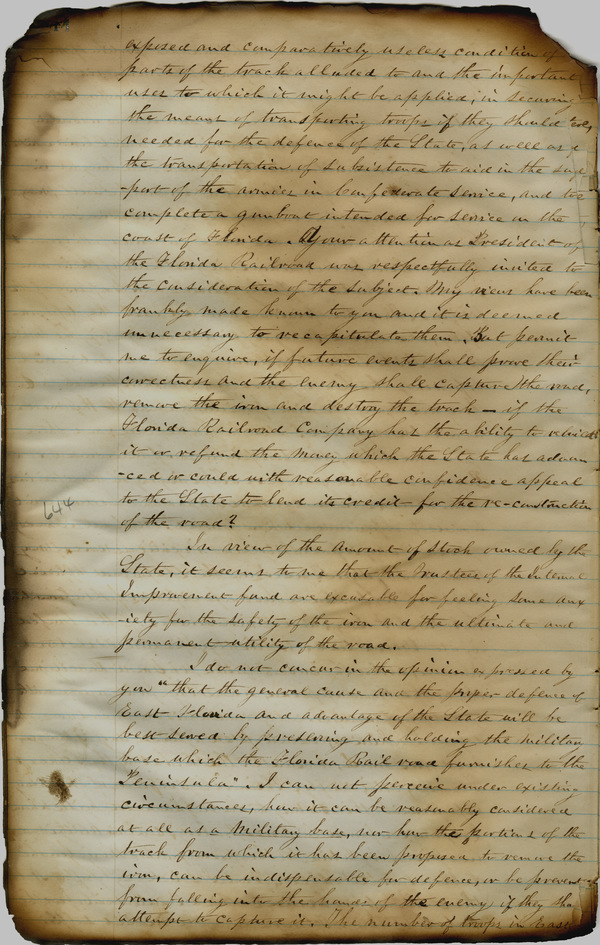 exposed and comparatively useless condition of
parts of the track alluded to and the important
uses to which it might be applied, in securing
the means of transporting troops if they should be
needed for the defence of the State, as well as
the transportation of subsistence to aid in the sup
-port of the armies in Confederate service, and to
complete a gunboat intended for service on the
coast of Florida. Your attention as President of
the Florida Railroad was respectfully invited to
the consideration of the subject. My views have been
frankly made known to you and it is deemed
unnecessary to recapitulate them. But permit
me to enquire, if future events shall prove their
correctness and the enemy shall capture the road,
remove the iron and destroy the track — if the
Florida Railroad Company has the ability to rebuild
it or refund the money which the State has advan
-ced or could with reasonable confidence appeal
to the State to lend its credit for the re-construction
644
of the road?
In view of the amount of Stock owned by the
State, it seems to me that the Trustees of the Internal
Improvement fund are excusable for feeling some anx
-iety for the safety of the iron and the ultimate and
permanent utility of the road.
I do not concur in the opinion expressed by
you "that the general cause and the proper defence of
East Florida and advantage of the State will be
best served by preserving and holding the military
base which the Florida Rail road furnishes to the
Peninsula". I can not perceive under existing
circumstances, how it can be reasonably considered
at all as a Military base, nor how the portions of the
track from which it has been proposed to remove the
iron, can be indispensable for defence, or be prevented
from falling into the hands of the enemy if they sha
attempt to capture it. The number of troops in East